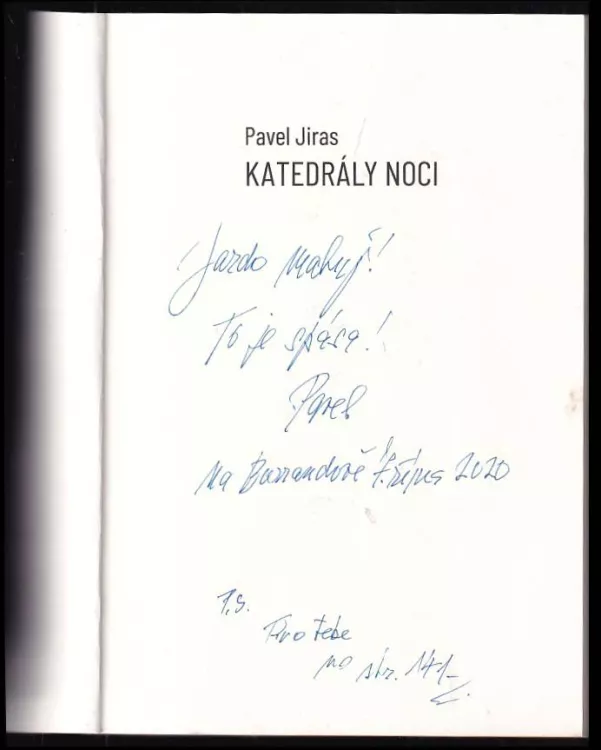 Pavel Jiras
KATEDRÁLY NOCI
Jardo maluj!
To je spása!
Pavel
Na Barrandově 7. října 2020
P.S.
Pro tebe
na str. 141